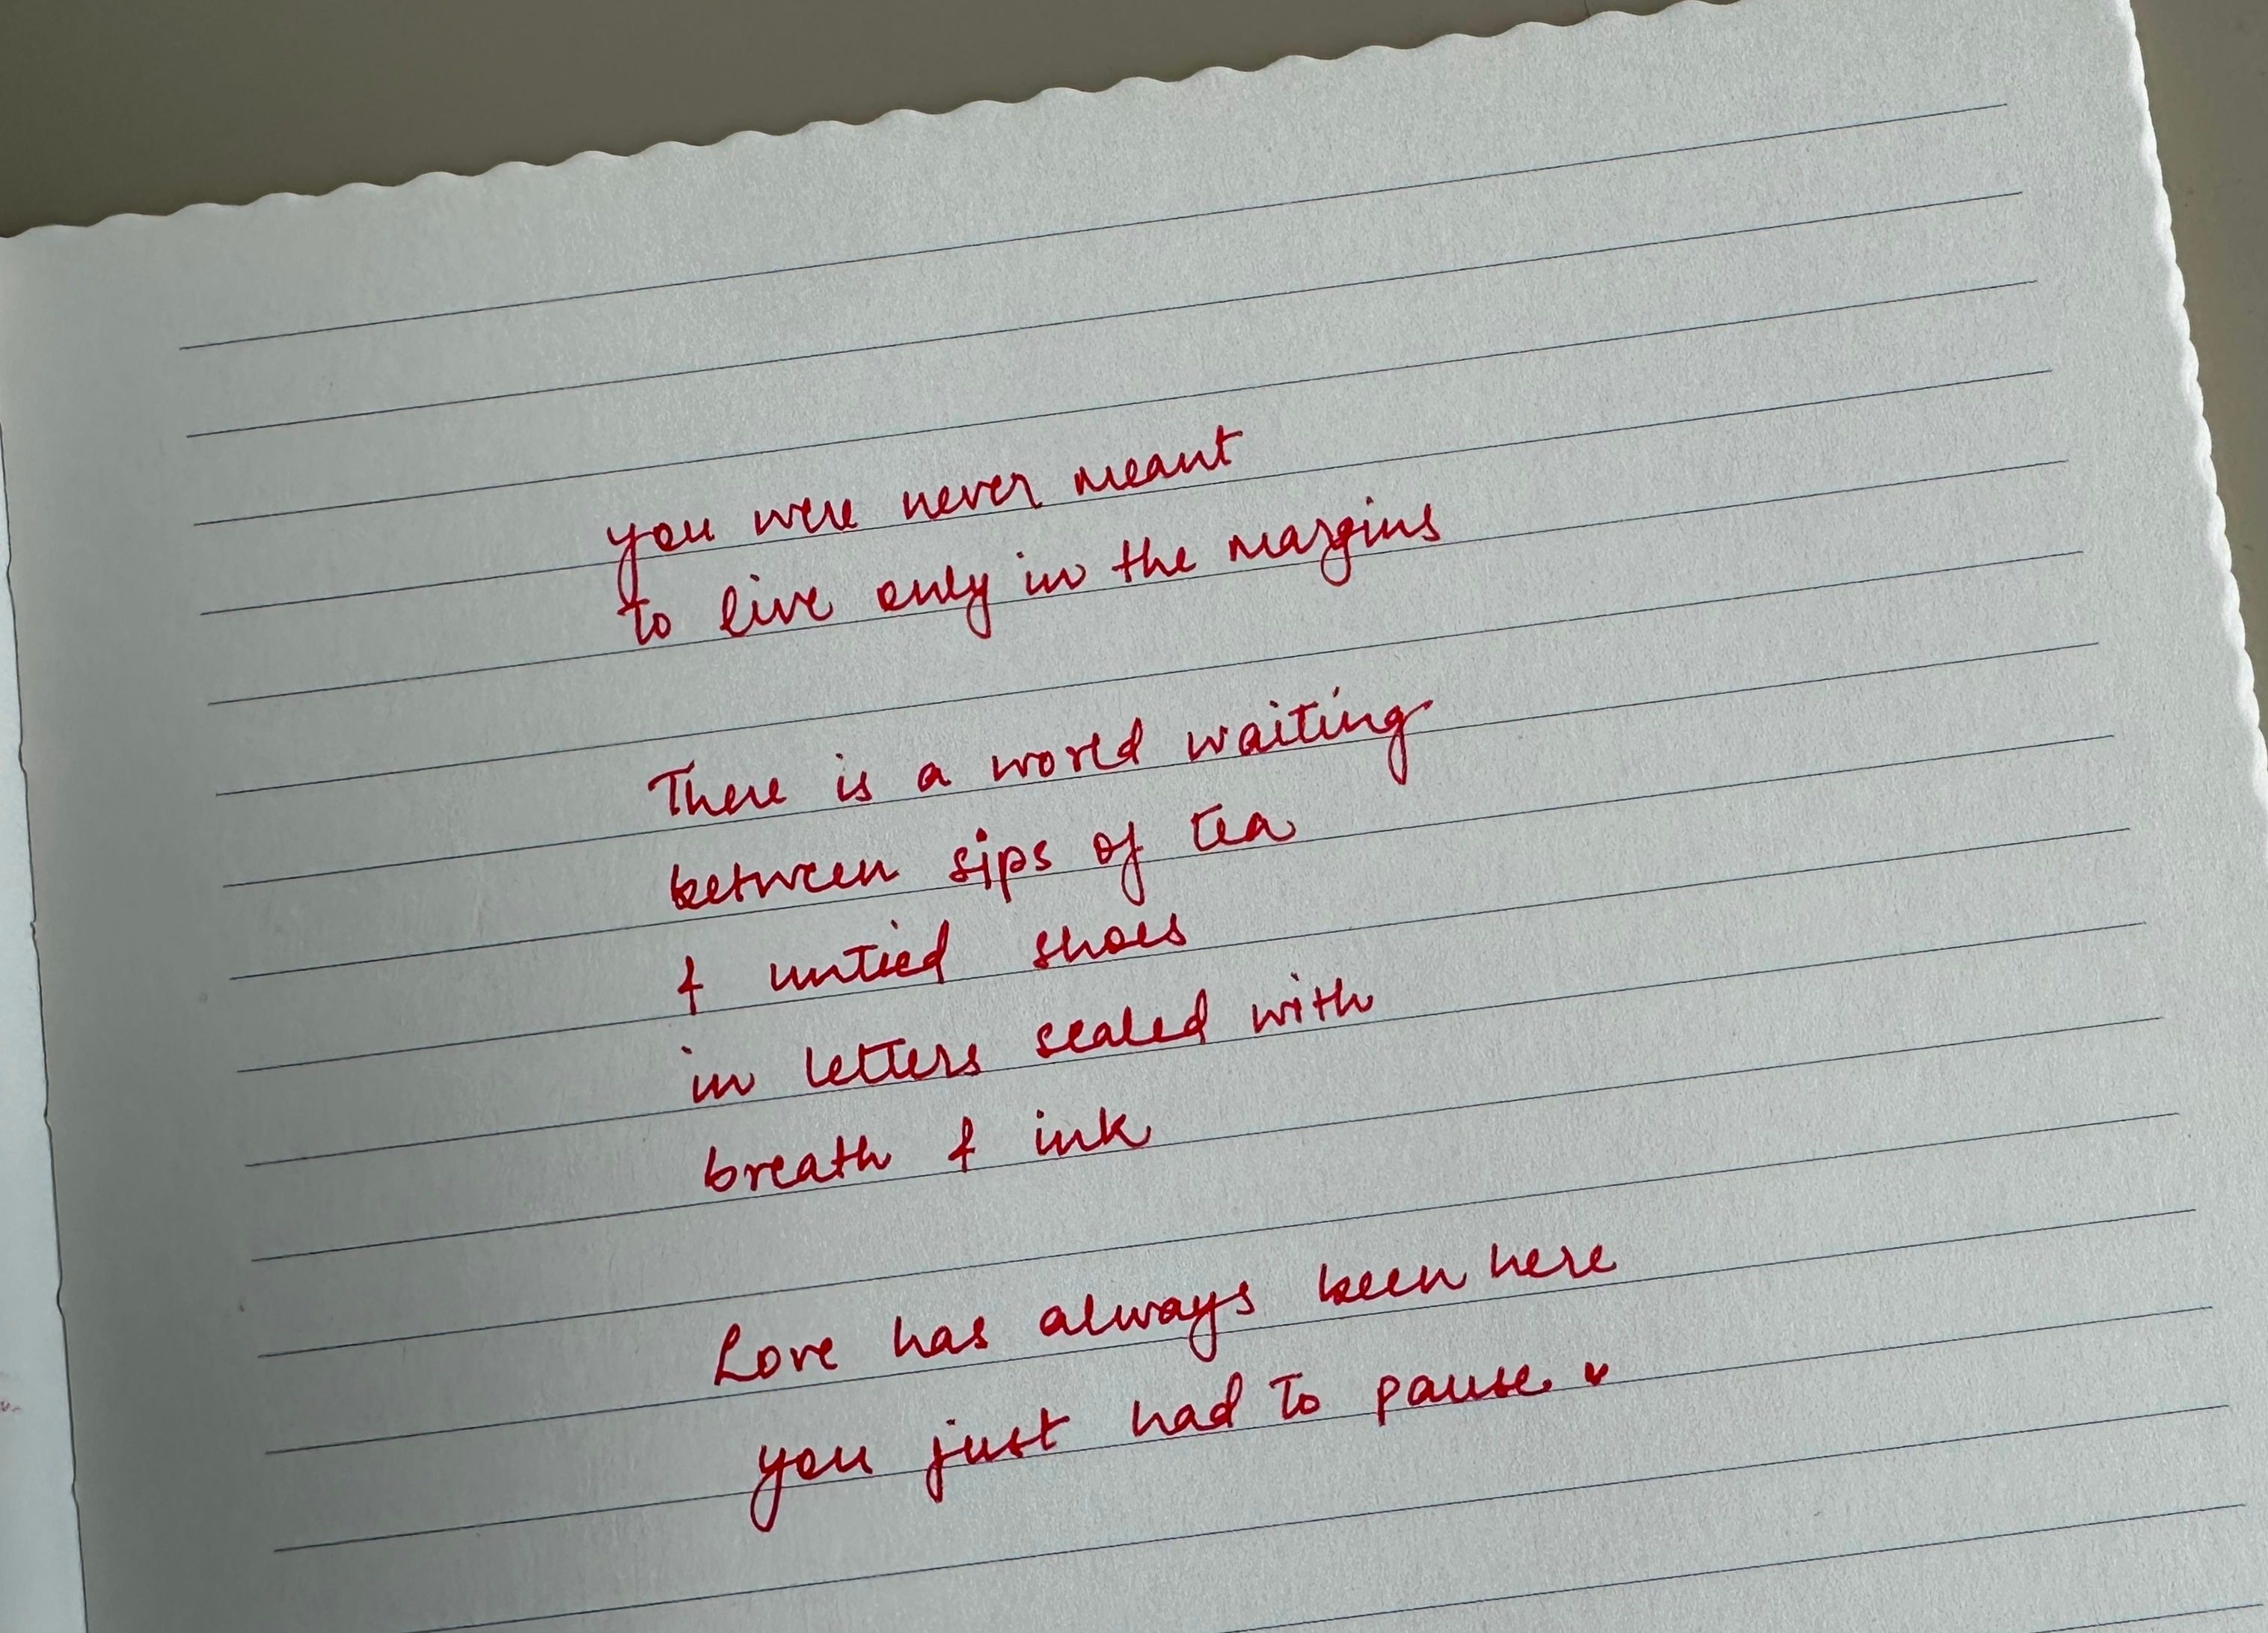 you were never meant
to live only in the margins
There is a world waiting
between sips of tea
& untied shoes
in letters sealed with
breath & ink
Love has always been here
you just had to pause. ♥